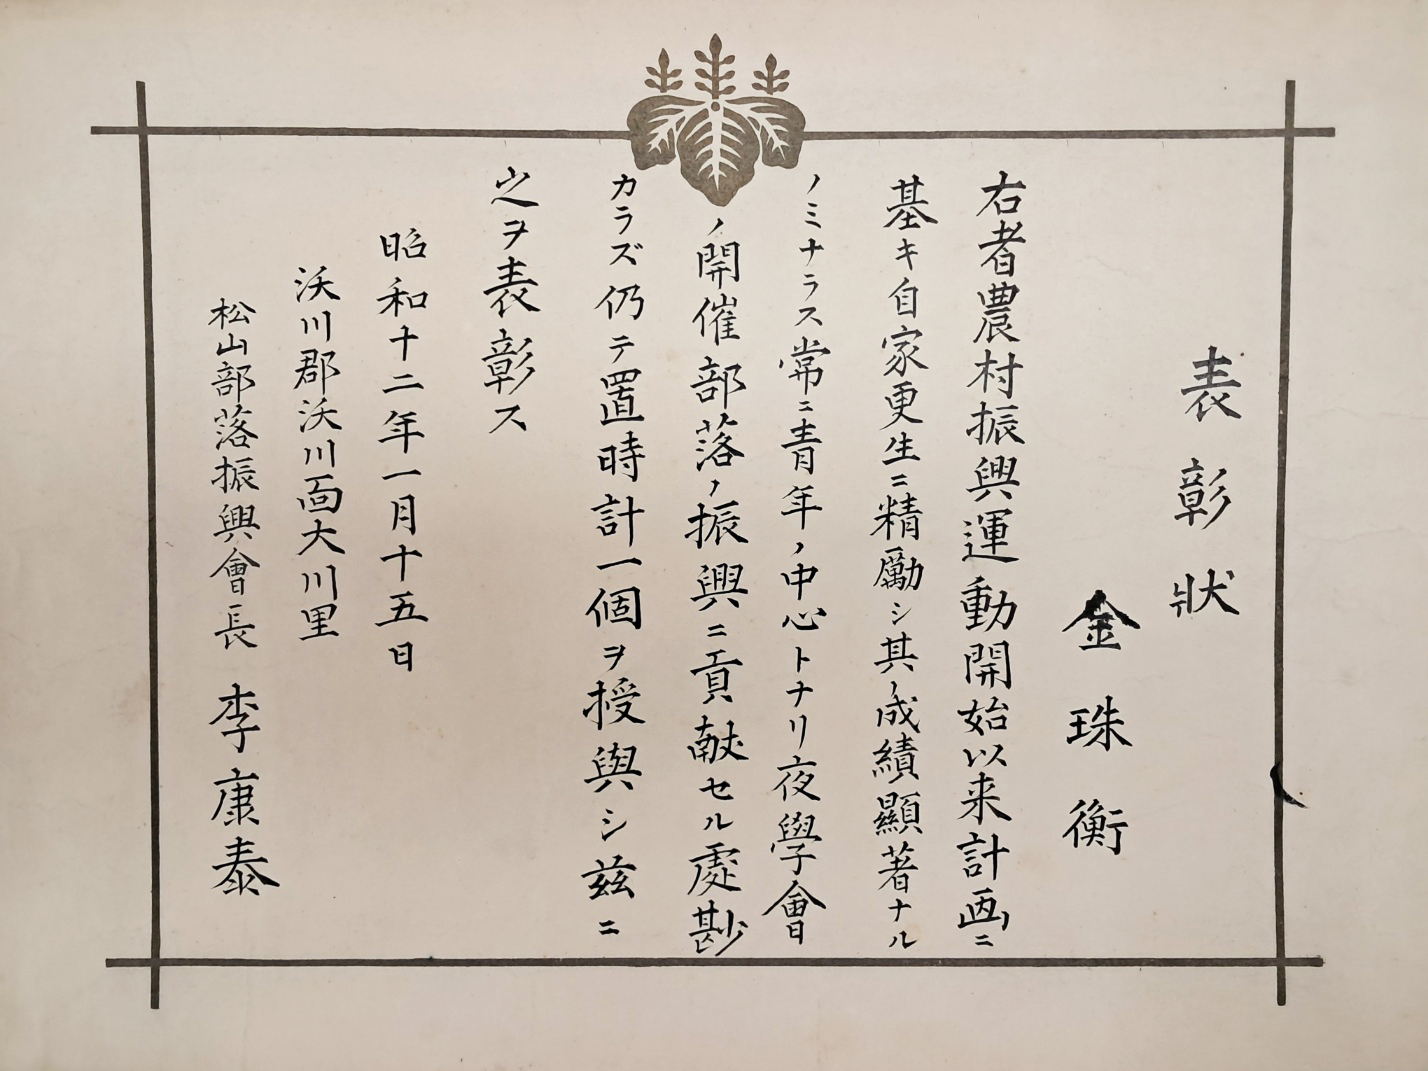 表彰狀
金珠衡
右者農村振興運動開始以来計画ニ
基キ自家更生ニ精勵シ其ノ成績顯著ナル
ノミナラス常ニ青年ノ中心トナリ夜學會
ノ開催部落ノ振興ニ貢献セル處尠
カラズ仍テ置時計一個ヲ授與シ茲ニ
之ヲ表彰ス
昭和十二年一月十五日
沃川郡沃川面大川里
松山部落振興會長 李康泰